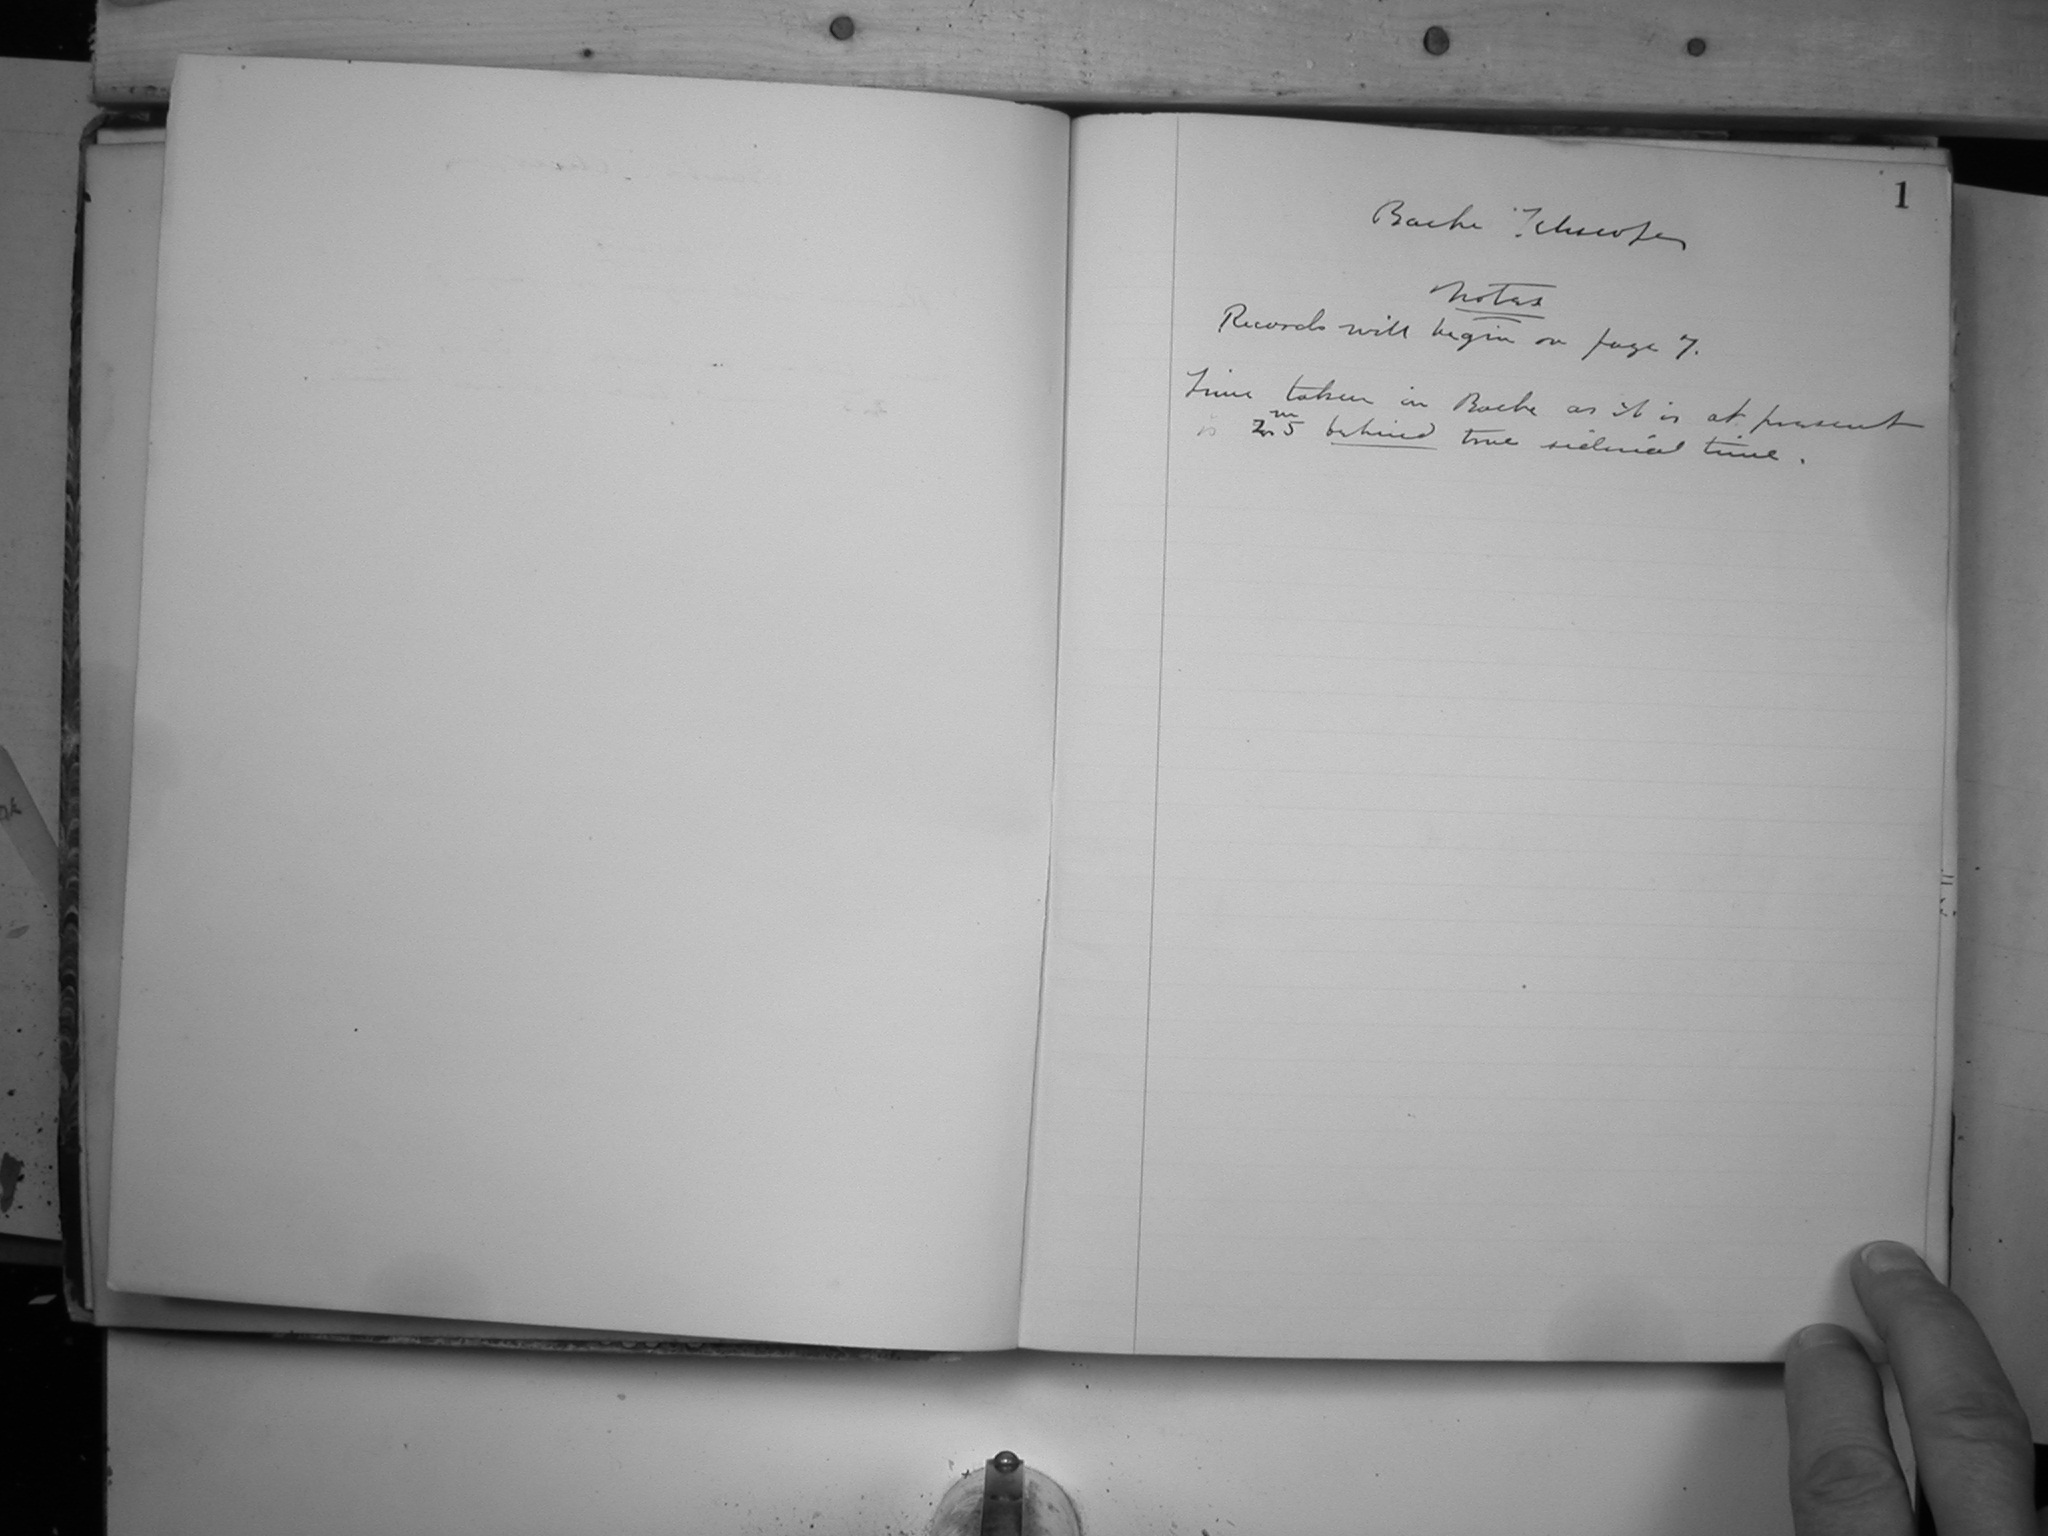 1
Bache Telescope
Notes
Records will begin on page 7.
Time taken in Bache as it is at present
is 2m5 behind true siderial time.